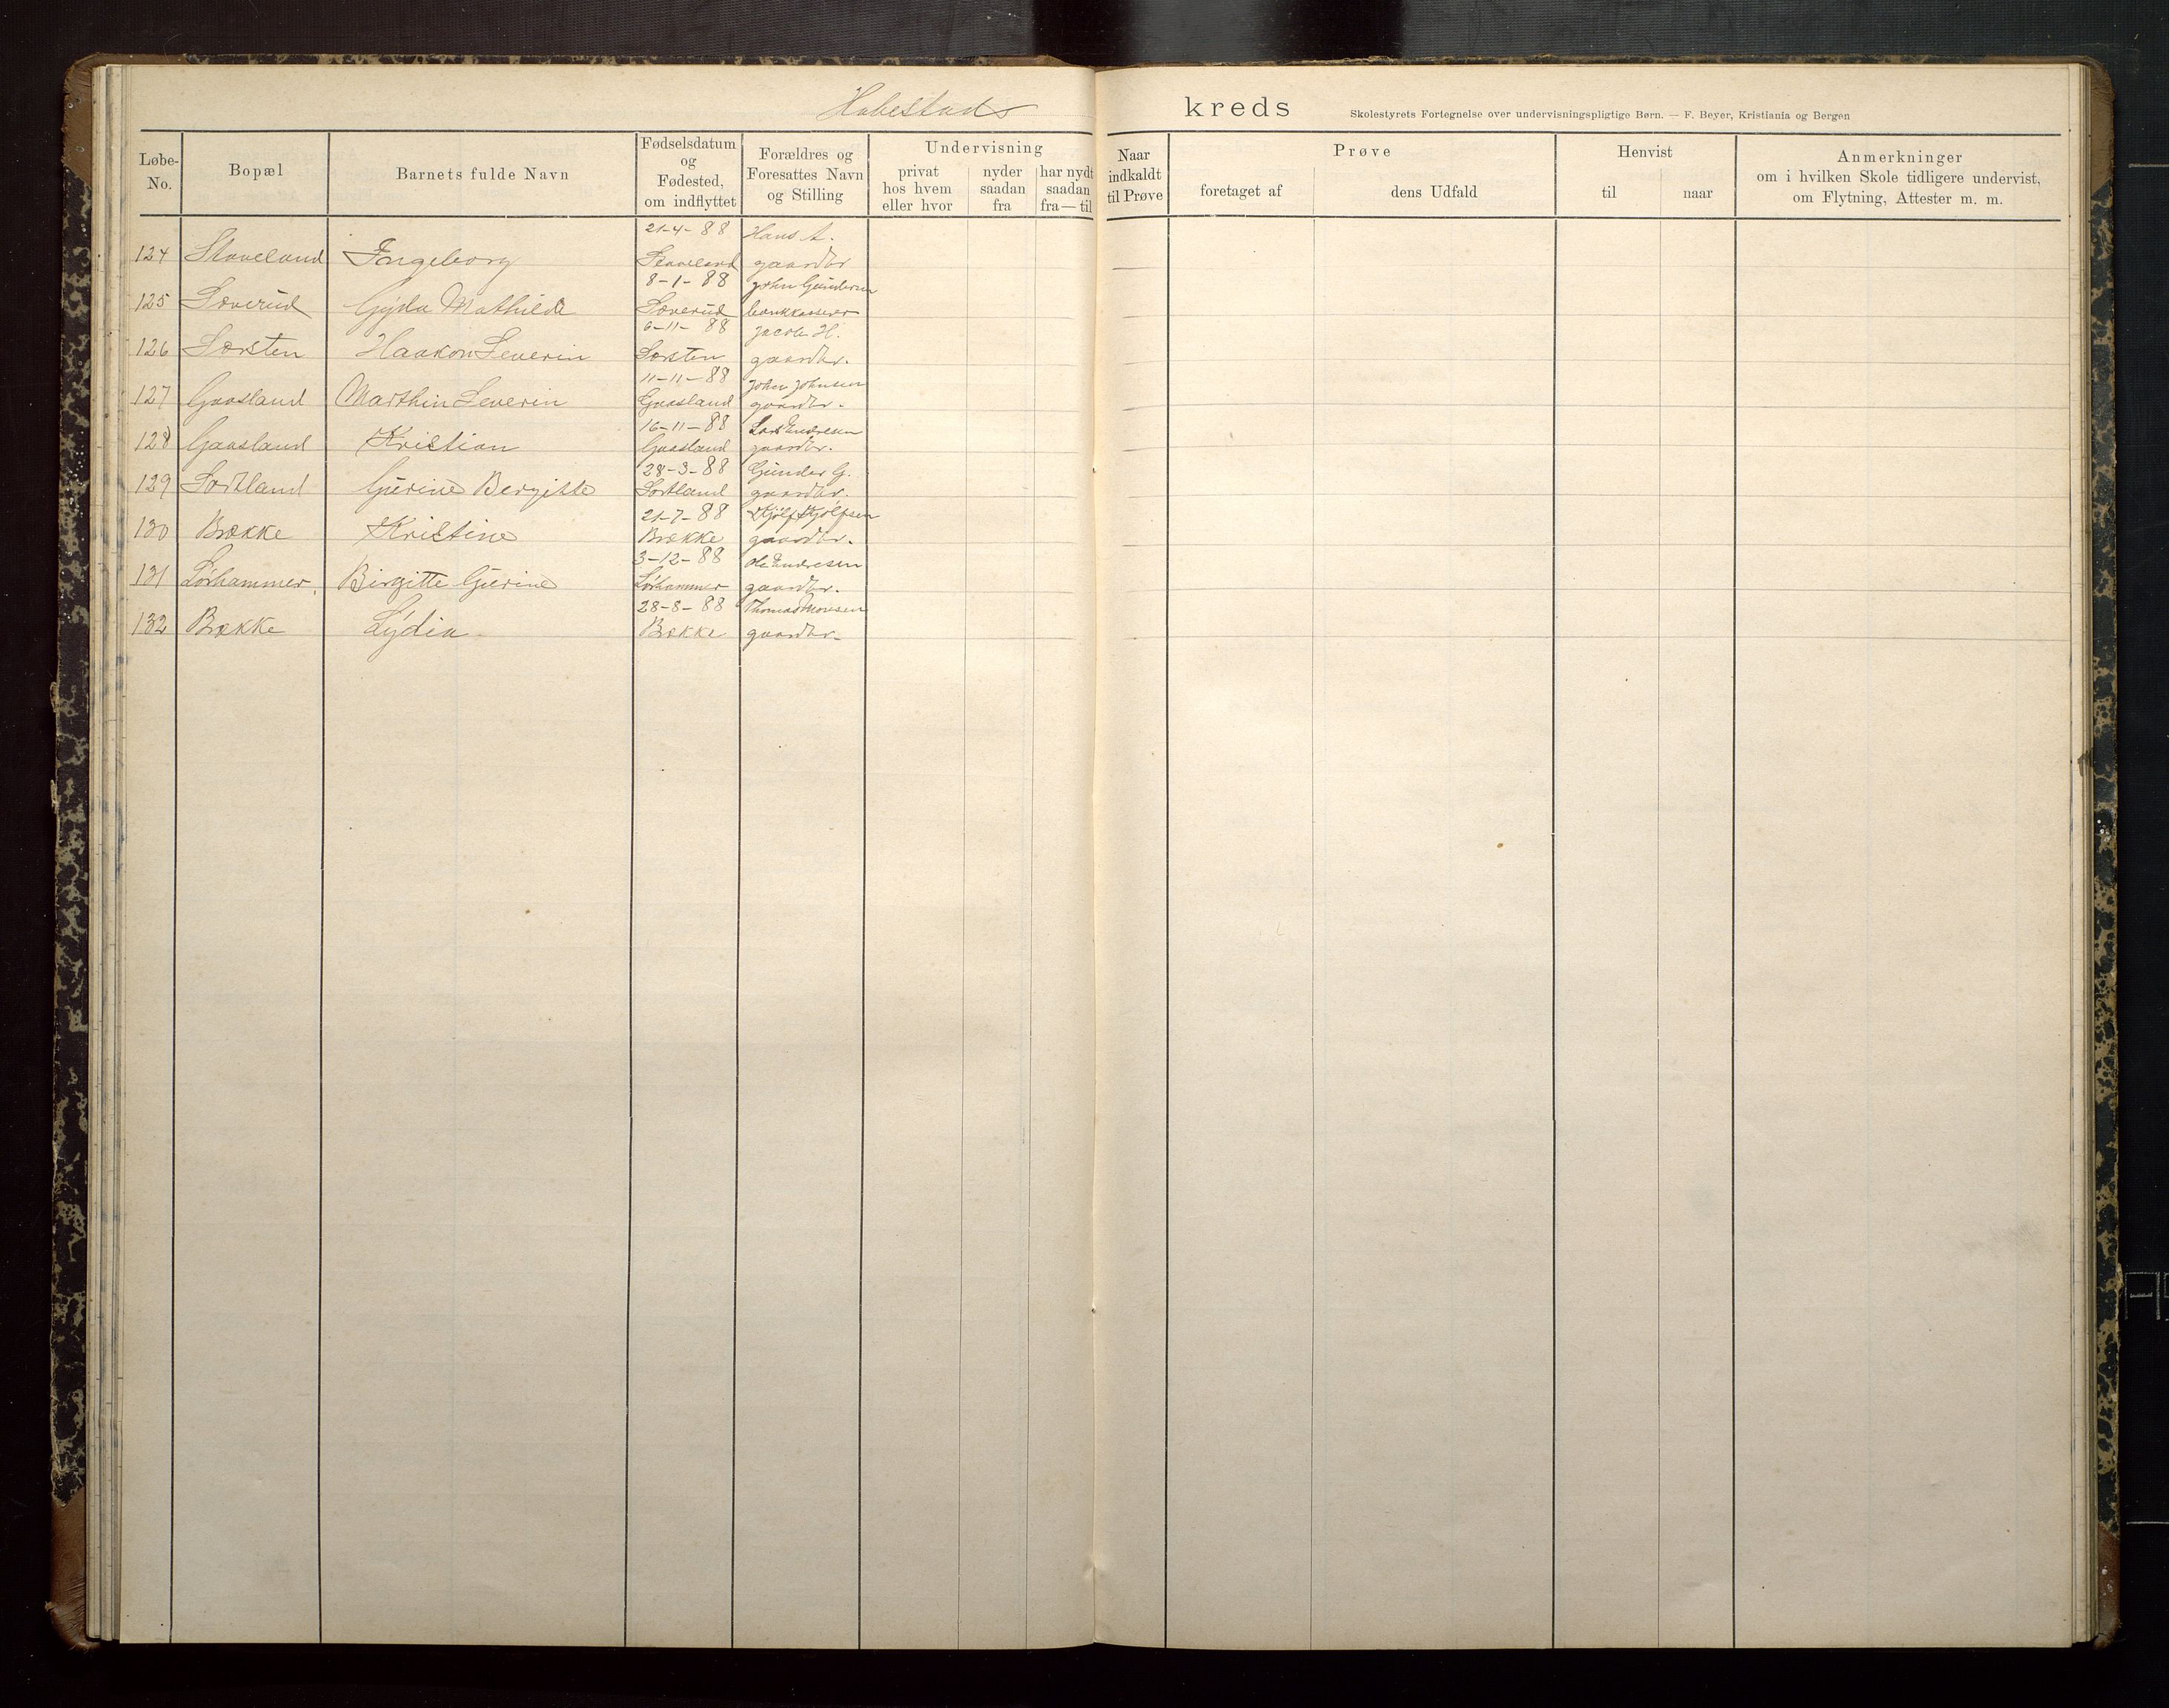 Habestads kreds Skolestyrets Fortegnelse over undervisningspligtige Børn. — F. Beyer, Kristiania og Bergen
Løbe-No. Bopæl Barnets fulde Navn Fødselsdatum og Fødested, om indflyttet Forældres og Foresattes Navn og Stilling Undervisning privat hos hvem eller hvor nyder saadan fra har nydt saadan fra—til Naar indkaldt til Prøve Prøve foretaget af dens Udfald Henvist til naar Anmerkninger om i hvilken Skole tidligere undervist, om Flytning, Attester m. m.
21-4-88 Hans A.
124 Staveland Ingeborg Staveland gaardbr
8-1-88 John Gundersen
125 Sæverud Gyda Mathilde Sæverud bankkasserer
6-11-88 Jacob H.
126 Sørsten Haakon Severin Sørsten gaardbr.
11-11-88 John Johnsen
127 Gaasland Marthin Severin Gaasland gaardbr.
16-11-88 Lars Endresen
128 Gaasland Kristian Gaasland gaardbr.
28-3-88 Gunder G.
129 Sortland Gurine Bergitte Sortland gaardbr.
21-7-88
130 Brække Kristine Brække gaardbr.
3-12-88 Ole Endresen
131 Lørhammer. Birgitte Gurine Lørhammer gaardbr.
28-8-88 Thomas Monsen
132 Brække Lydia Brække gaardbr.